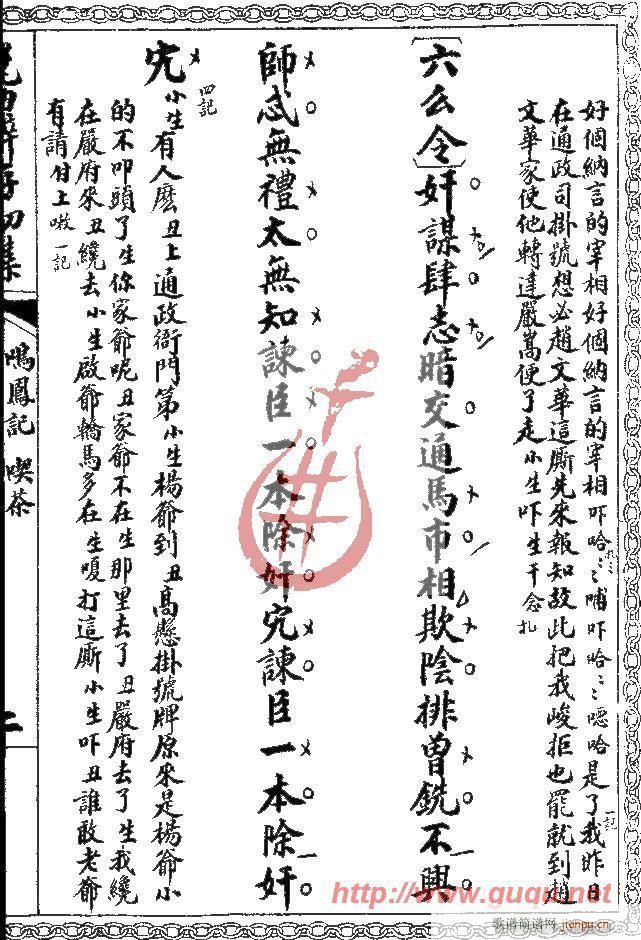 好個納言的宰相好個納言的宰相吓哈〻〻哺吓哈〻〻噁哈是了我昨日
在通政司掛號想必趙文華這廝先來報知故此把我峻拒也罷就到趙
文華家使他轉達嚴嵩便了走小生吓生干念扎
〔六么令〕奸謀肆志暗交通馬市相欺陰排曾銑不興
師忒無禮太無知諫臣一本除奸宄諫臣一本除奸
宄小生有人麽丑上通政衙門第小生楊爺到丑高懸掛號牌原來是楊爺小
的不叩頭了生你家爺呢丑家爺不在生那里去了丑嚴府去了生我纔
在嚴府來丑纔去小生啟爺轎馬多在生嗄打這廝小生吓丑誰敢老爺
有請付上嗷一記
四記
一記
鳴鳳記 喫茶
二
http://www.guqu.net
歌谱简谱网
jianpu.cn